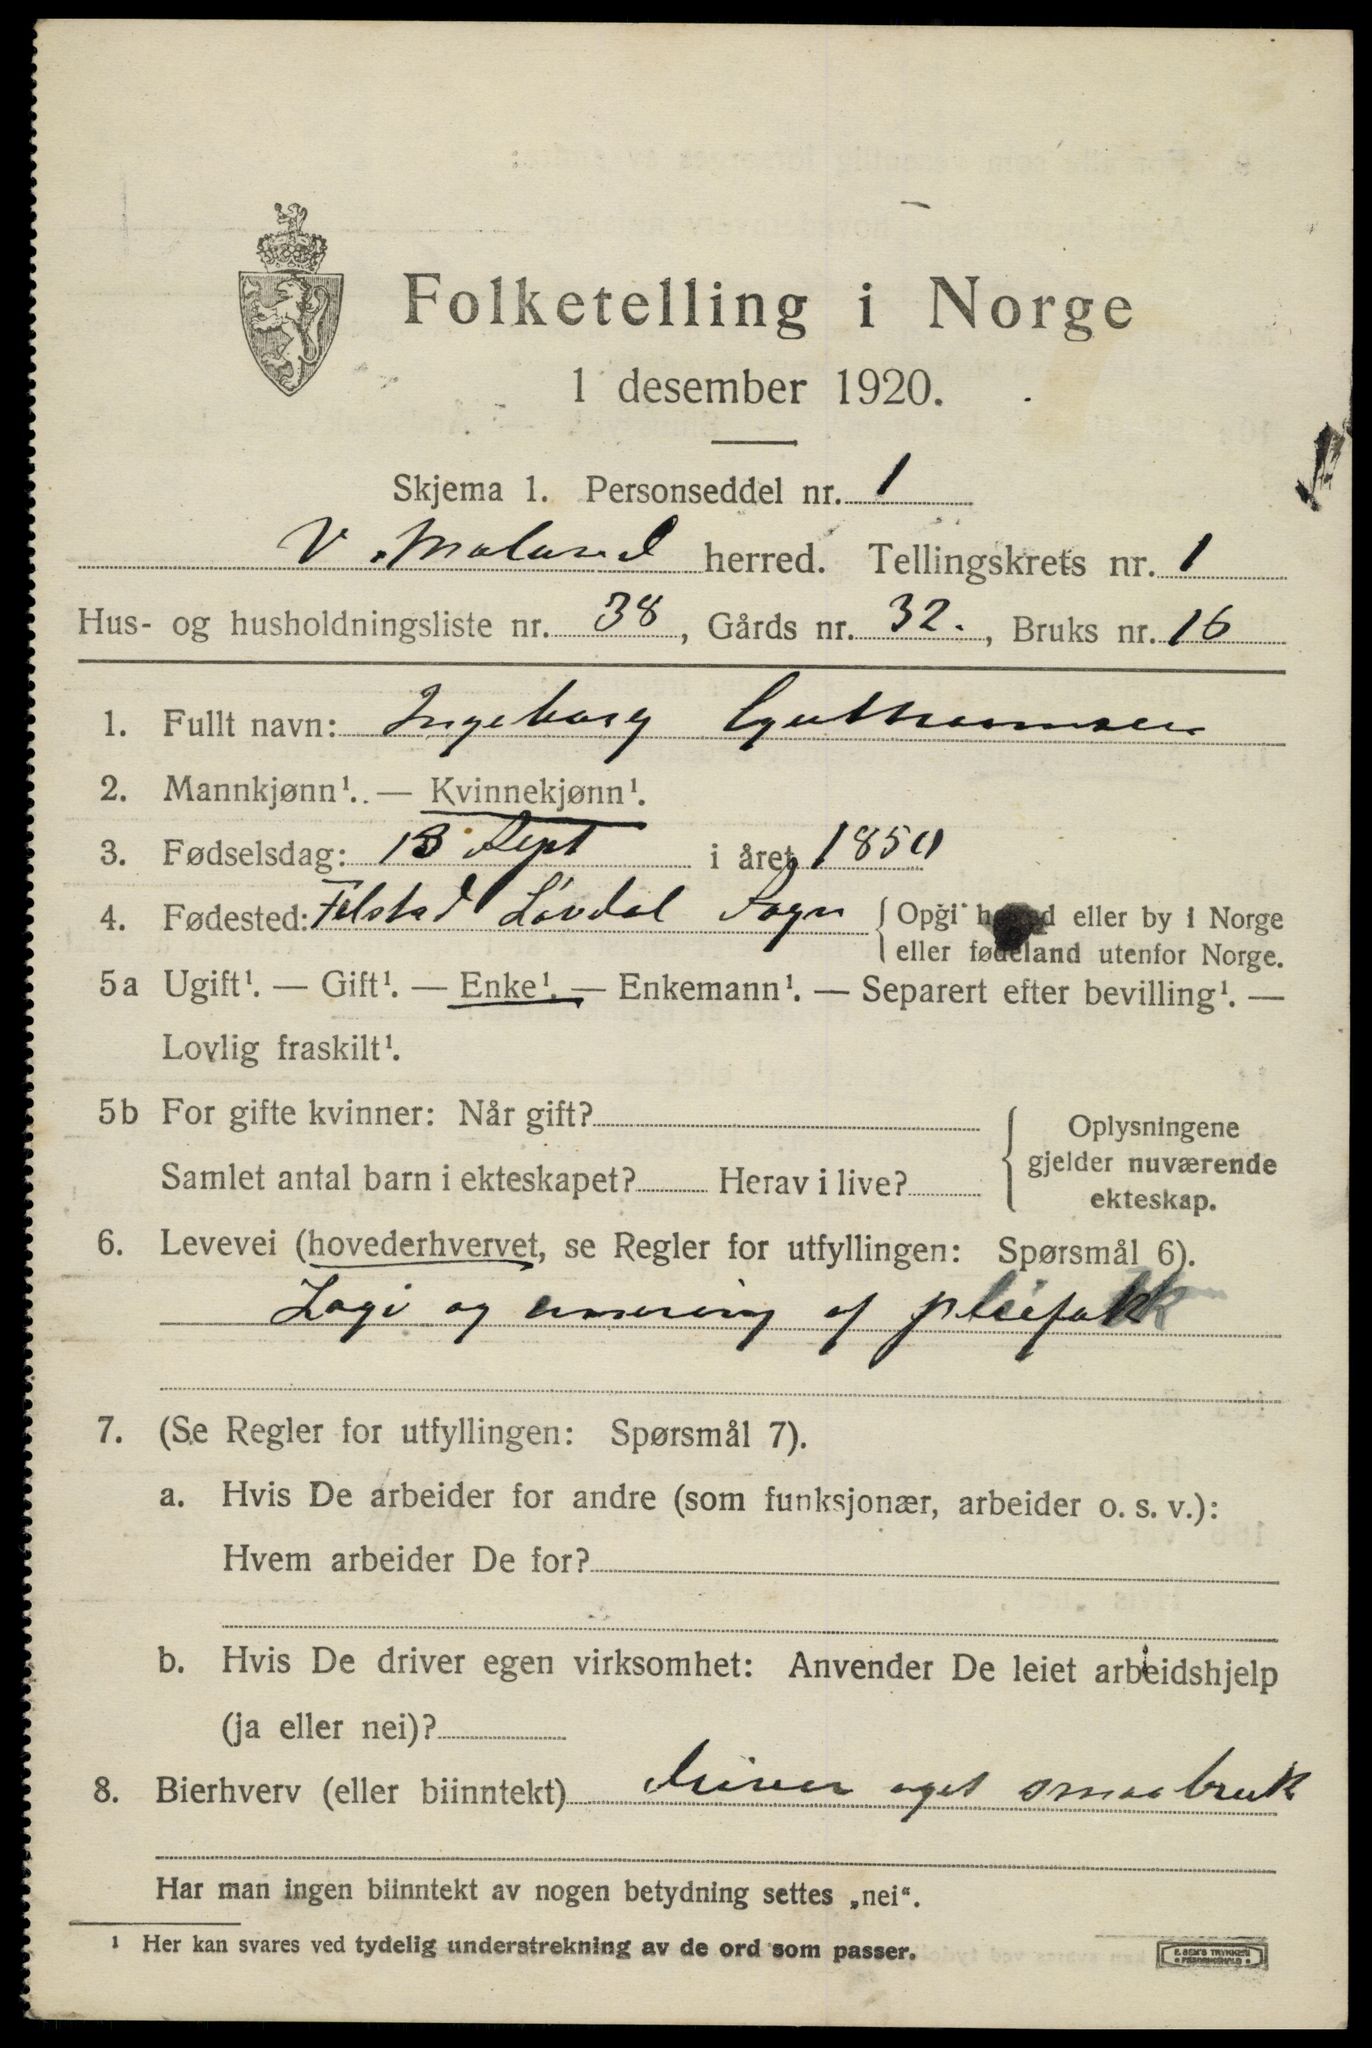 Folketelling i Norge
1 desember 1920.
Skjema 1. Personseddel nr. 1
V. Moland herred. Tellingskrets nr. 1
Hus- og husholdningsliste nr. 38, Gårds nr. 32., Bruks nr. 16
1. Fullt navn: Ingeborg
2. Mannkjønn¹. — Kvinnekjønn¹.
3. Fødselsdag: 13 Sept i året 1850
4. Fødested: Løvdal Sogn { Opgi herred eller by i Norge
eller fødeland utenfor Norge.
5a Ugift¹. — Gift¹. — Enke¹. — Enkemann¹. — Separert efter bevilling¹. —
Lovlig fraskilt¹.
5b For gifte kvinner: Når gift?
Samlet antal barn i ekteskapet? Herav i live?
Oplysningene
gjelder nuværende
ekteskap.
6. Levevei (hovederhvervet, se Regler for utfyllingen: Spørsmål 6).
og af
7. (Se Regler for utfyllingen: Spørsmål 7).
a. Hvis De arbeider for andre (som funksjonær, arbeider o. s. v.):
Hvem arbeider De for?
b. Hvis De driver egen virksomhet: Anvender De leiet arbeidshjelp
(ja eller nei)?
8. Bierhverv (eller biinntekt) driver eget smaabruk
Har man ingen biinntekt av nogen betydning settes „nei“.
¹ Her kan svares ved tydelig understrekning av de ord som passer.
E. SEM'S TRYKKERI
FREDRIKSHALD